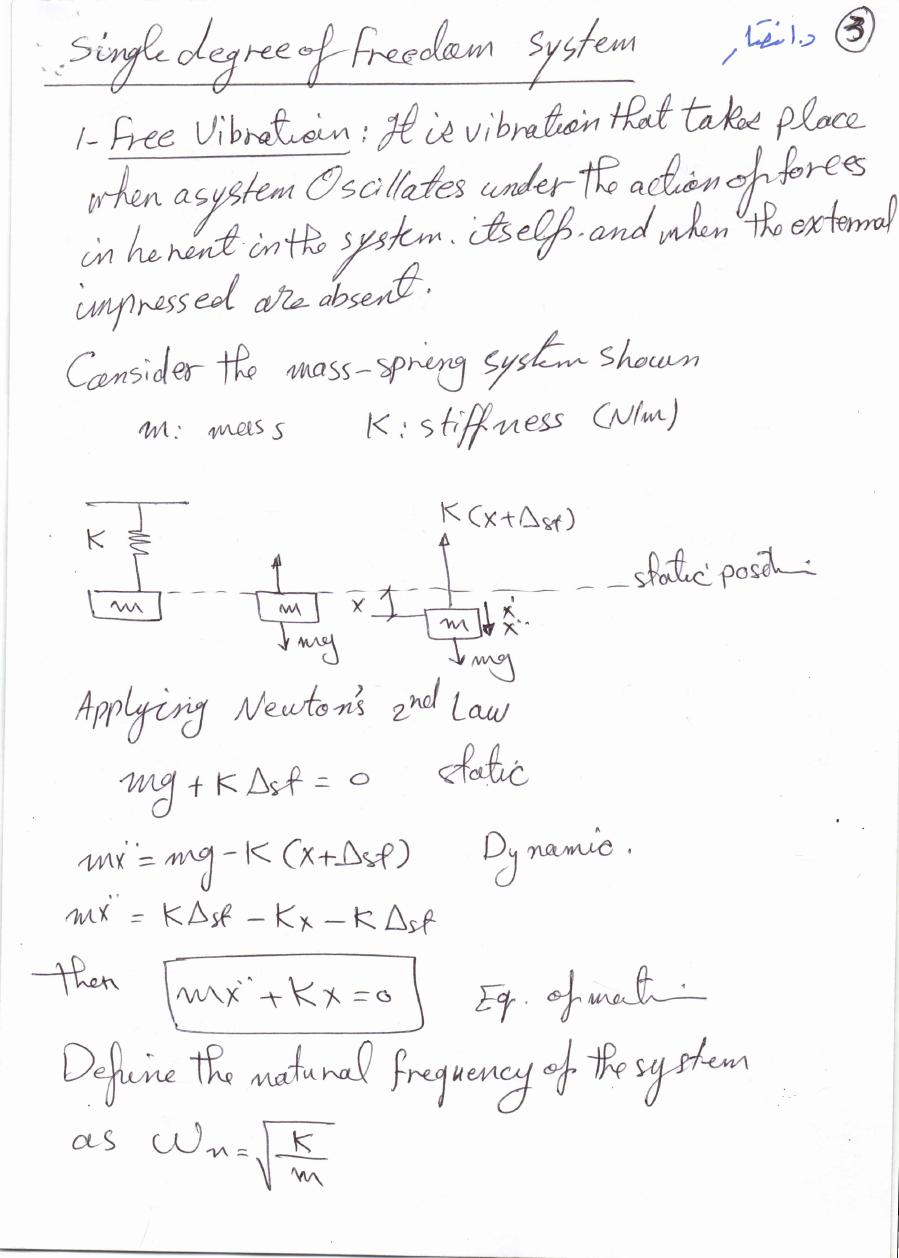 Single degree of freedom system
د. انتصار 3
1- Free Vibration: It is vibration that takes place
when a system Oscillates under the action of forces
in herent in the system. itself. and when the external
impressed are absent.
Consider the mass-spring system shown
m: mass K: stiffness (N/m)
K (x+Δst)
K
m m x m ẋ ẍ static position
mg mg
Applying Newton's 2nd Law
mg + K Δst = 0 static
mẍ = mg - K (x+Δst) Dynamic.
mẍ = KΔst - Kx - K Δst
then mẍ + Kx = 0 Eq. of motion
Define the natural frequency of the system
as ωn = √(K/m)